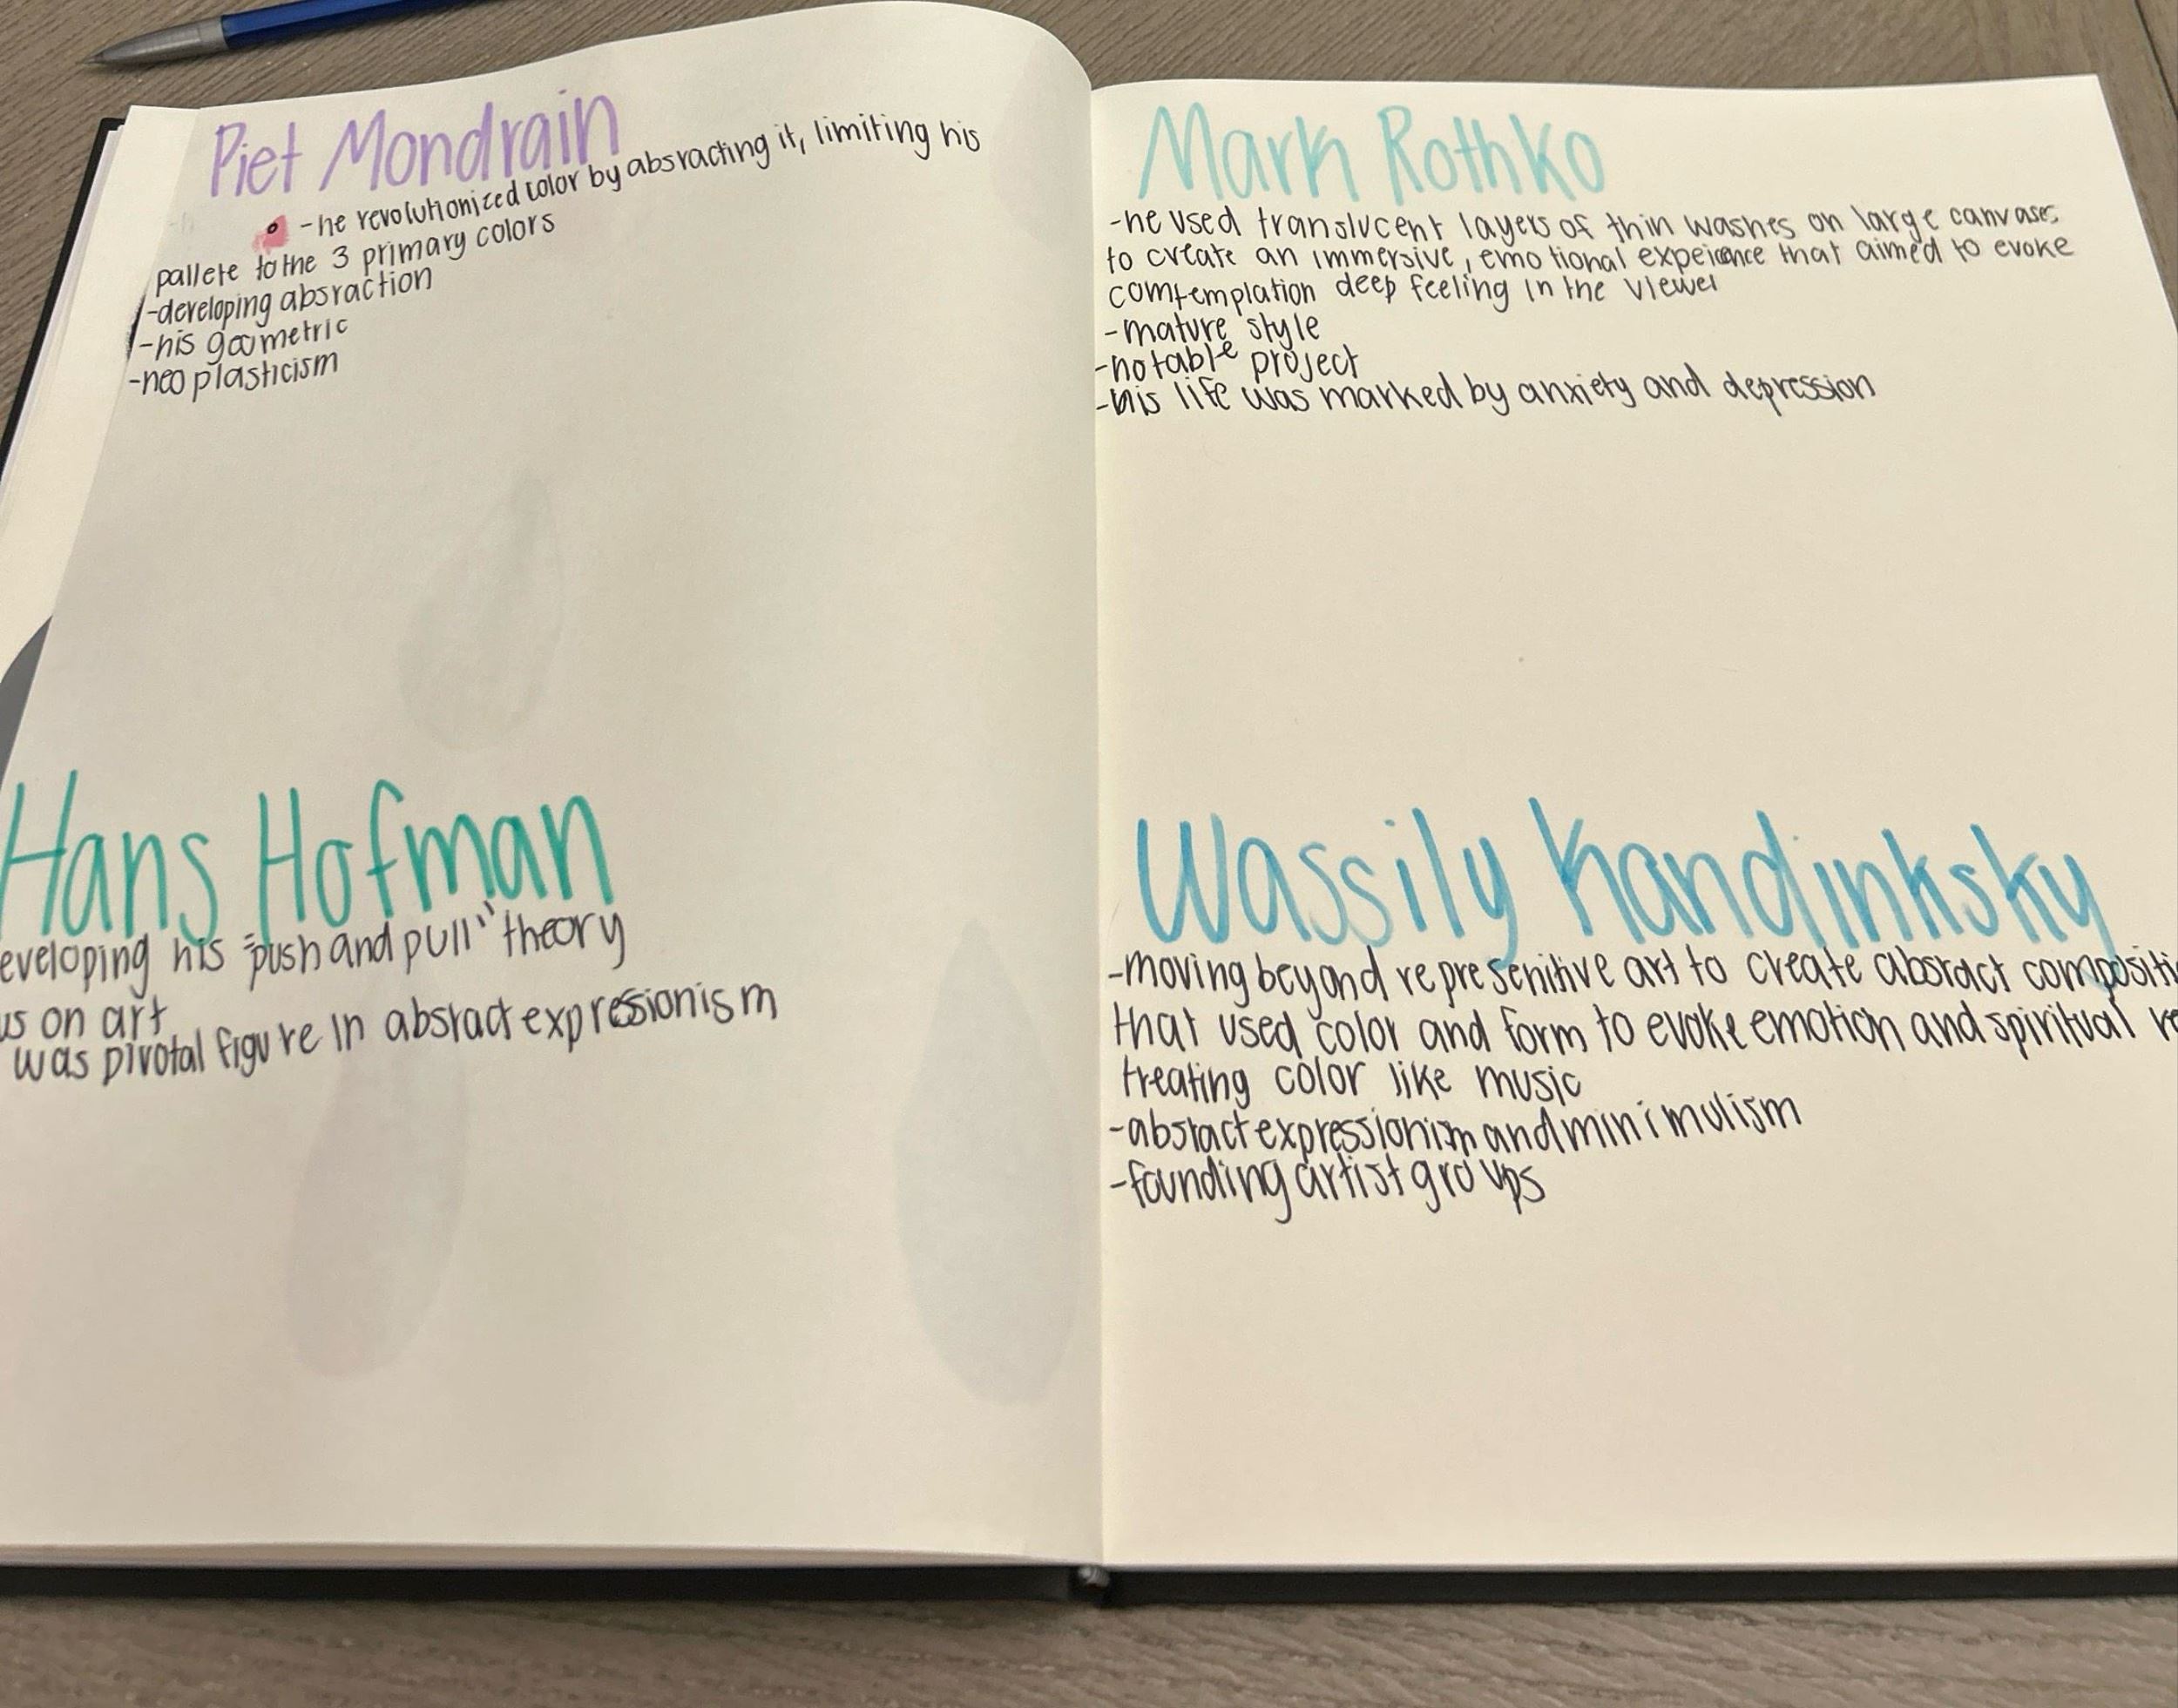 Piet Mondrain
-he revolutionized color by absracting it, limiting his
pallete to the 3 primary colors
-developing absraction
-his geometric
-neoplasticism
Hans Hofman
eveloping his "push and pull" theory
us on art
was pivotal figure in absract expressionism
Mark Rothko
-he used translucent layers of thin washes on large canvases
to create an immersive, emotional expeience that aimed to evoke
comtemplation deep feeling in the viewer
-mature style
-notable project
-his life was marked by anxiety and depression
Wassily Kandinksky
-moving beyond represenitive art to create absract compositi
that used color and form to evoke emotion and spiritual re
treating color like music
-absract expressionism and minimulism
-founding artist groups